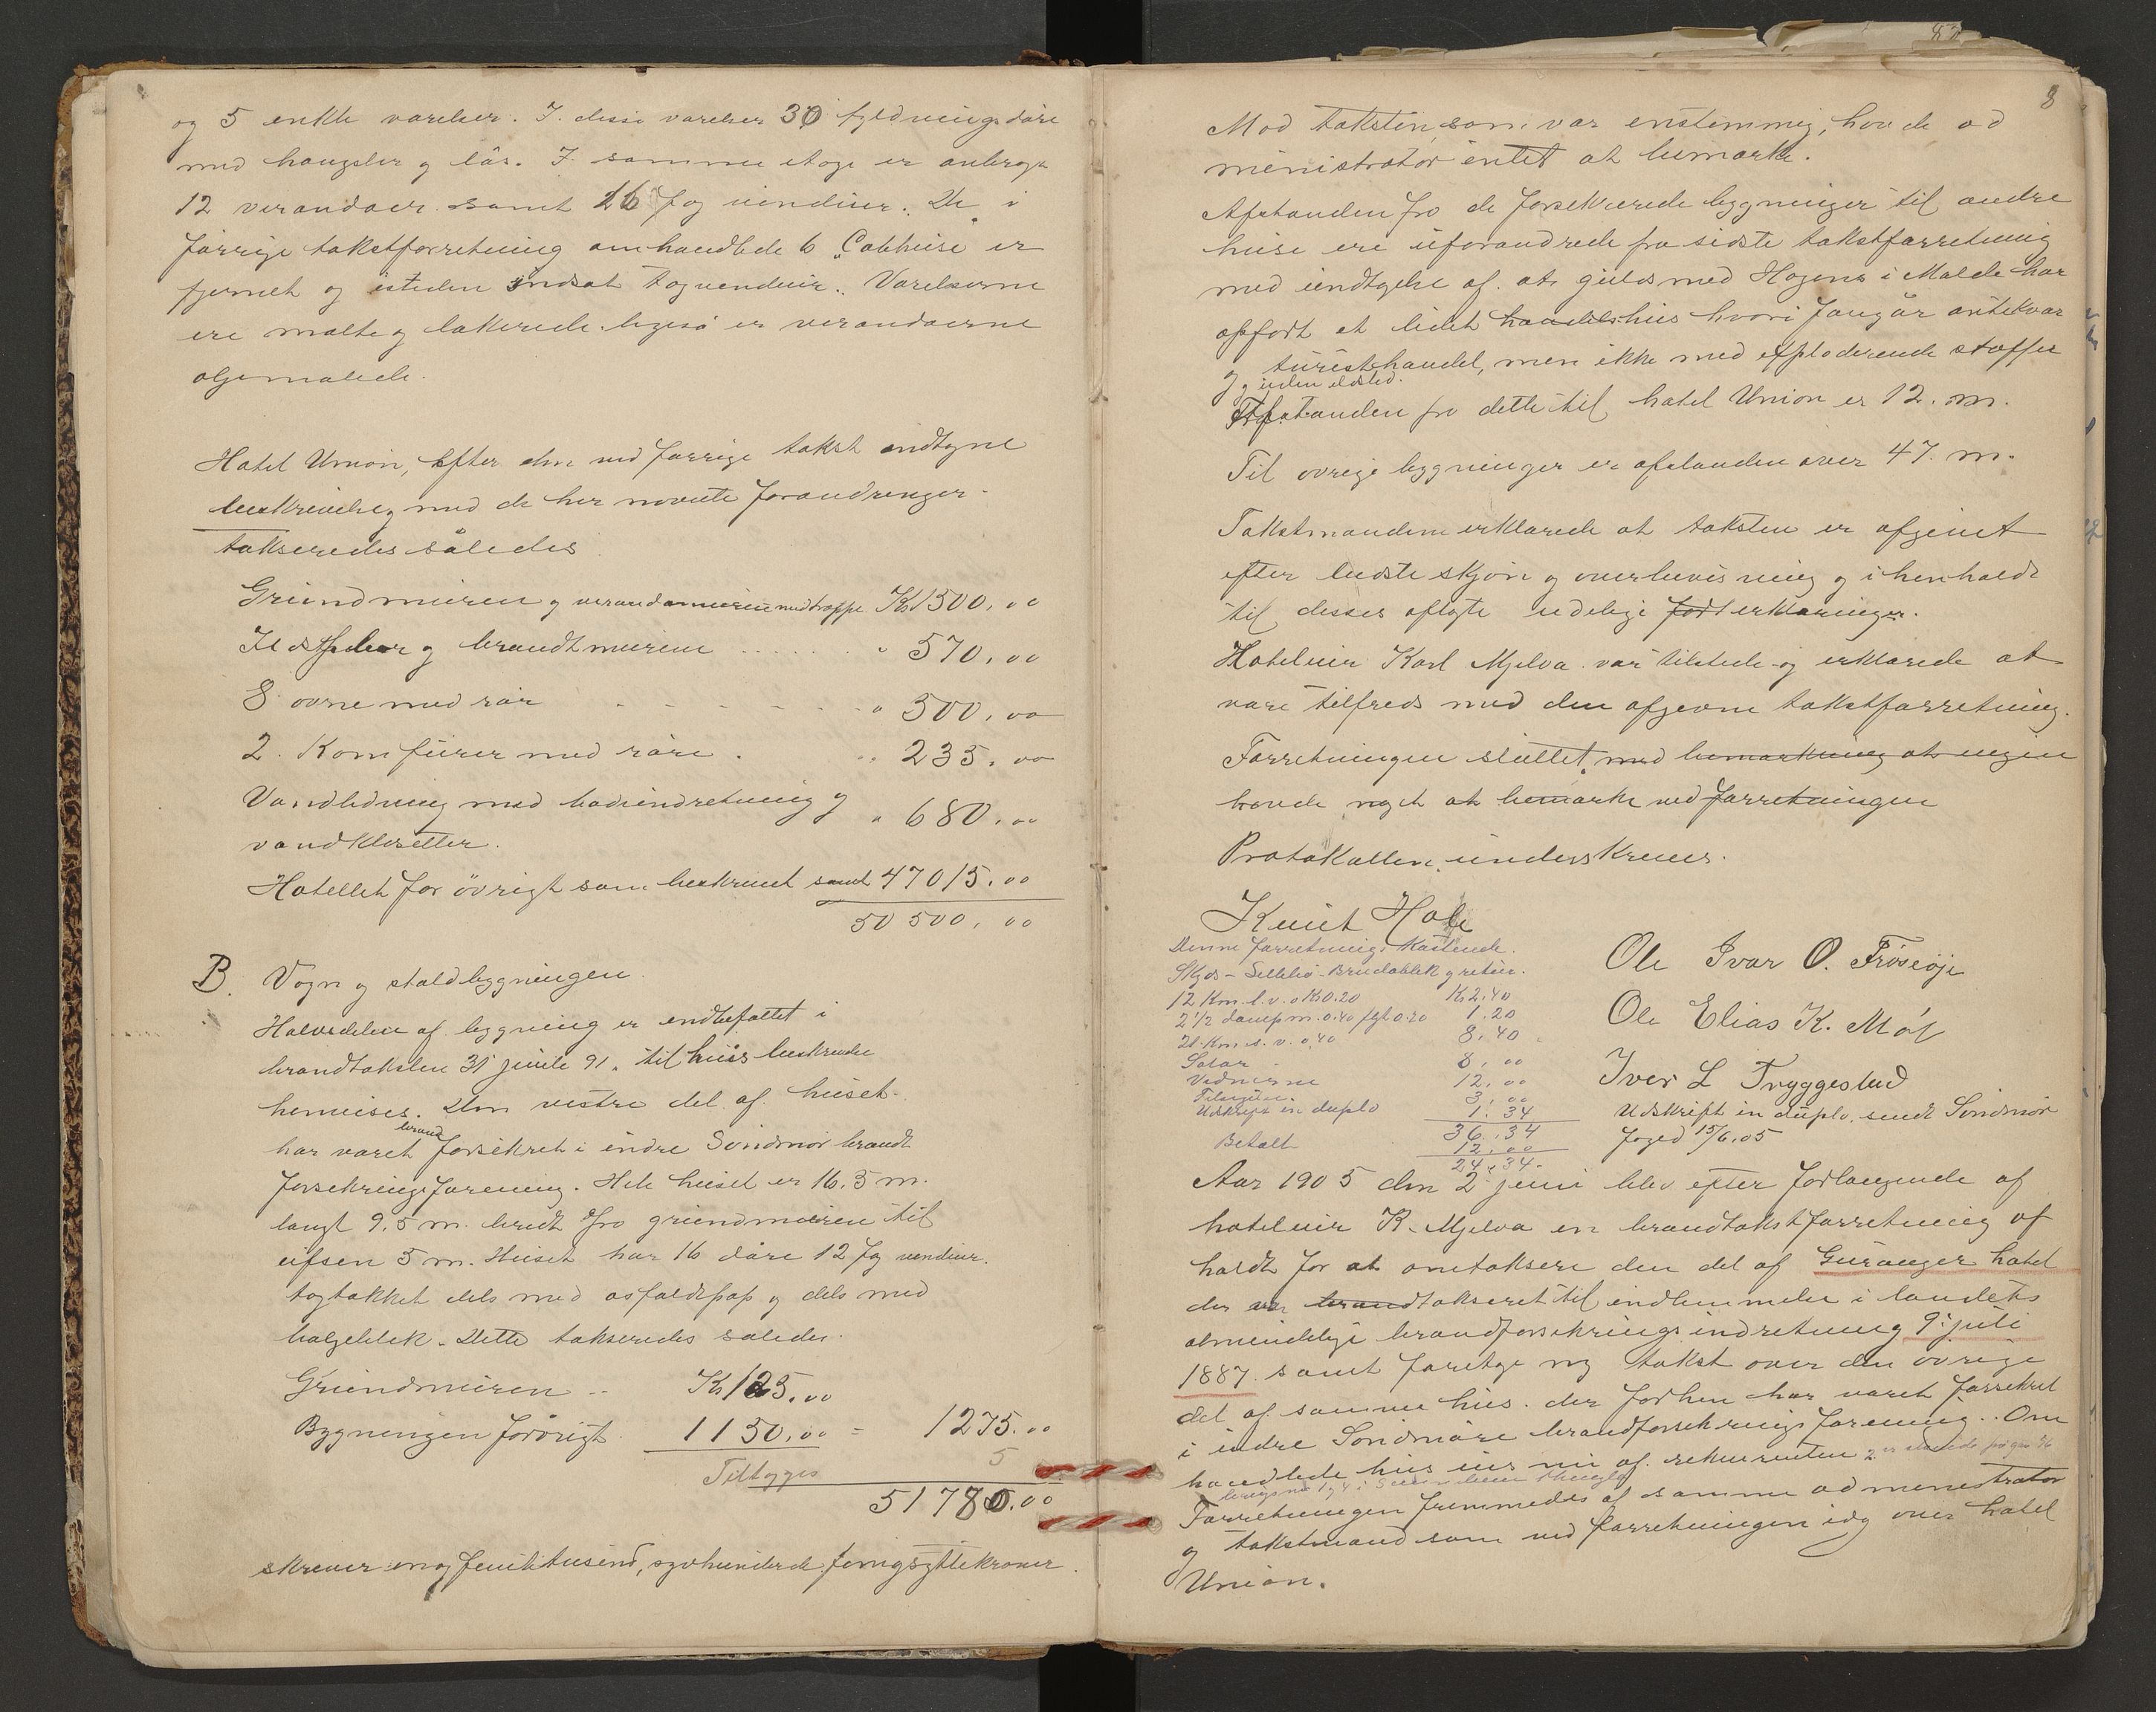 og 5 enkle værelser. I disse værelser 30 fyldningsdøre
med hængsler og lås. I samme etage er anbragt
12 verandaer samt 26 fag vinduer. De i
førrige takstforretning omhandlede 6 "Cobhuse" er
fjernet og isteden indsat tagvinduer. Værelserne
ere malte og lakerede ligeså er verandaerne
oljemalede.
Hotel Union, efter den ved førrige takst indtagne
beskrivelse og med de her nævnte forandringer
takseredes således
Grundmuren og verandamuren med trappe Kr 1500,00
Ildsteder og brandtmurene " 570,00
8 ovne med rør " 500,00
2 Komfurer med røre " 235,00
Vandledning med badeindretning og " 680,00
vandklosetter.
Hotellet for øvrigt som beskrevet samt 47015,00
50500,00
B. Vogn og staldbygningen
Halvedelen af bygning er indbefattet i
brandtaksten 31 juli 91, til hvis beskrivelse
henvises. Den vestre del af huset
har været brand forsikret i indre Søndmør brandt
forsikringsforening. Hele huset er 16,5 m.
langt 9,5 m. bredt fra grundmuren til
ufsen 5 m. Huset har 16 døre 12 fag vinduer.
tagtækket dels med asfaldtpap og dels med
bølgeblik. Dette takseredes således
Grundmuren Kr 125,00
Bygningen forøvrigt 1150,00 = 1275.00
Tillægges 5
51780.00
skriver en og femtitusind, syvhundrede og firsgstyvekroner.
8
Mod taksten, som var enstemmig, havde ad
ministrator intet at bemærke.
Afstanden fra de forsikrede bygninger til andre
huse ere uforandrede fra sidste takstforretning
med undtagelse af at guldsmed Hagens i Molde har
opført et lidet handelshus hvori foregår antikvar
og turisthandel, men ikke med exploderende stoffer
og uden ildsted.
Afstanden fra dette til hotel Union er 12. m.
Til øvrige bygninger er afstanden over 47. m.
Takstmændene erklærede at taksten er afgivet
efter bedste skjøn og overbevisning og i henhold
til desses aflagte edelige forterklaringer.
Hoteleier Karl Mjelva var tilstede og erklærede at
være tilfreds med den afgivne takstforretning.
Forretningen sluttet, med bemærkning at ingen
havde noget at bemærke ved forretningen
Protokollen underskreves.
Knut Hole
Ole Ivar O. Frøseøje
Ole Elias K. Møl
Iver L Tryggestad
Denne forretnings Kostende.
Skyds - Sellebø - Brudablik og retur.
12 Km. l.v. a Kr 0.20 Kr 2.40
2 1/2 damp m. 0.40 fgl 0.20 1.20
21 Km s. v. 0,40 8.40
Salær 8.00
Vidnerne 12.00
Tilsigelse 3.00
Udskrift in duplo 1.34
36.34
Betalt 12.00
24.34
Udskrift in duplo sendt Søndmør
foged 15/6.05
Aar 1905 den 2 juni blev efter forlangende af
hoteleier K. Mjelva en brandtakstforretning af
holdt for at omtaksere den del af Geiranger hotel
der var brandtakseret til indlemmelse i landets
almindelige brandforsikringsindretning 9. juli
1887 samt foretage ny takst over den øvrige
del af samme hus der forhen har været forsikret
i indre Søndmøre brandforsikringsforening. Om
handlede hus eies nu af rekvirenten
Forretningen fremmedes af samme administrator
og takstmænd som ved forretningen idag over hotel
Union.